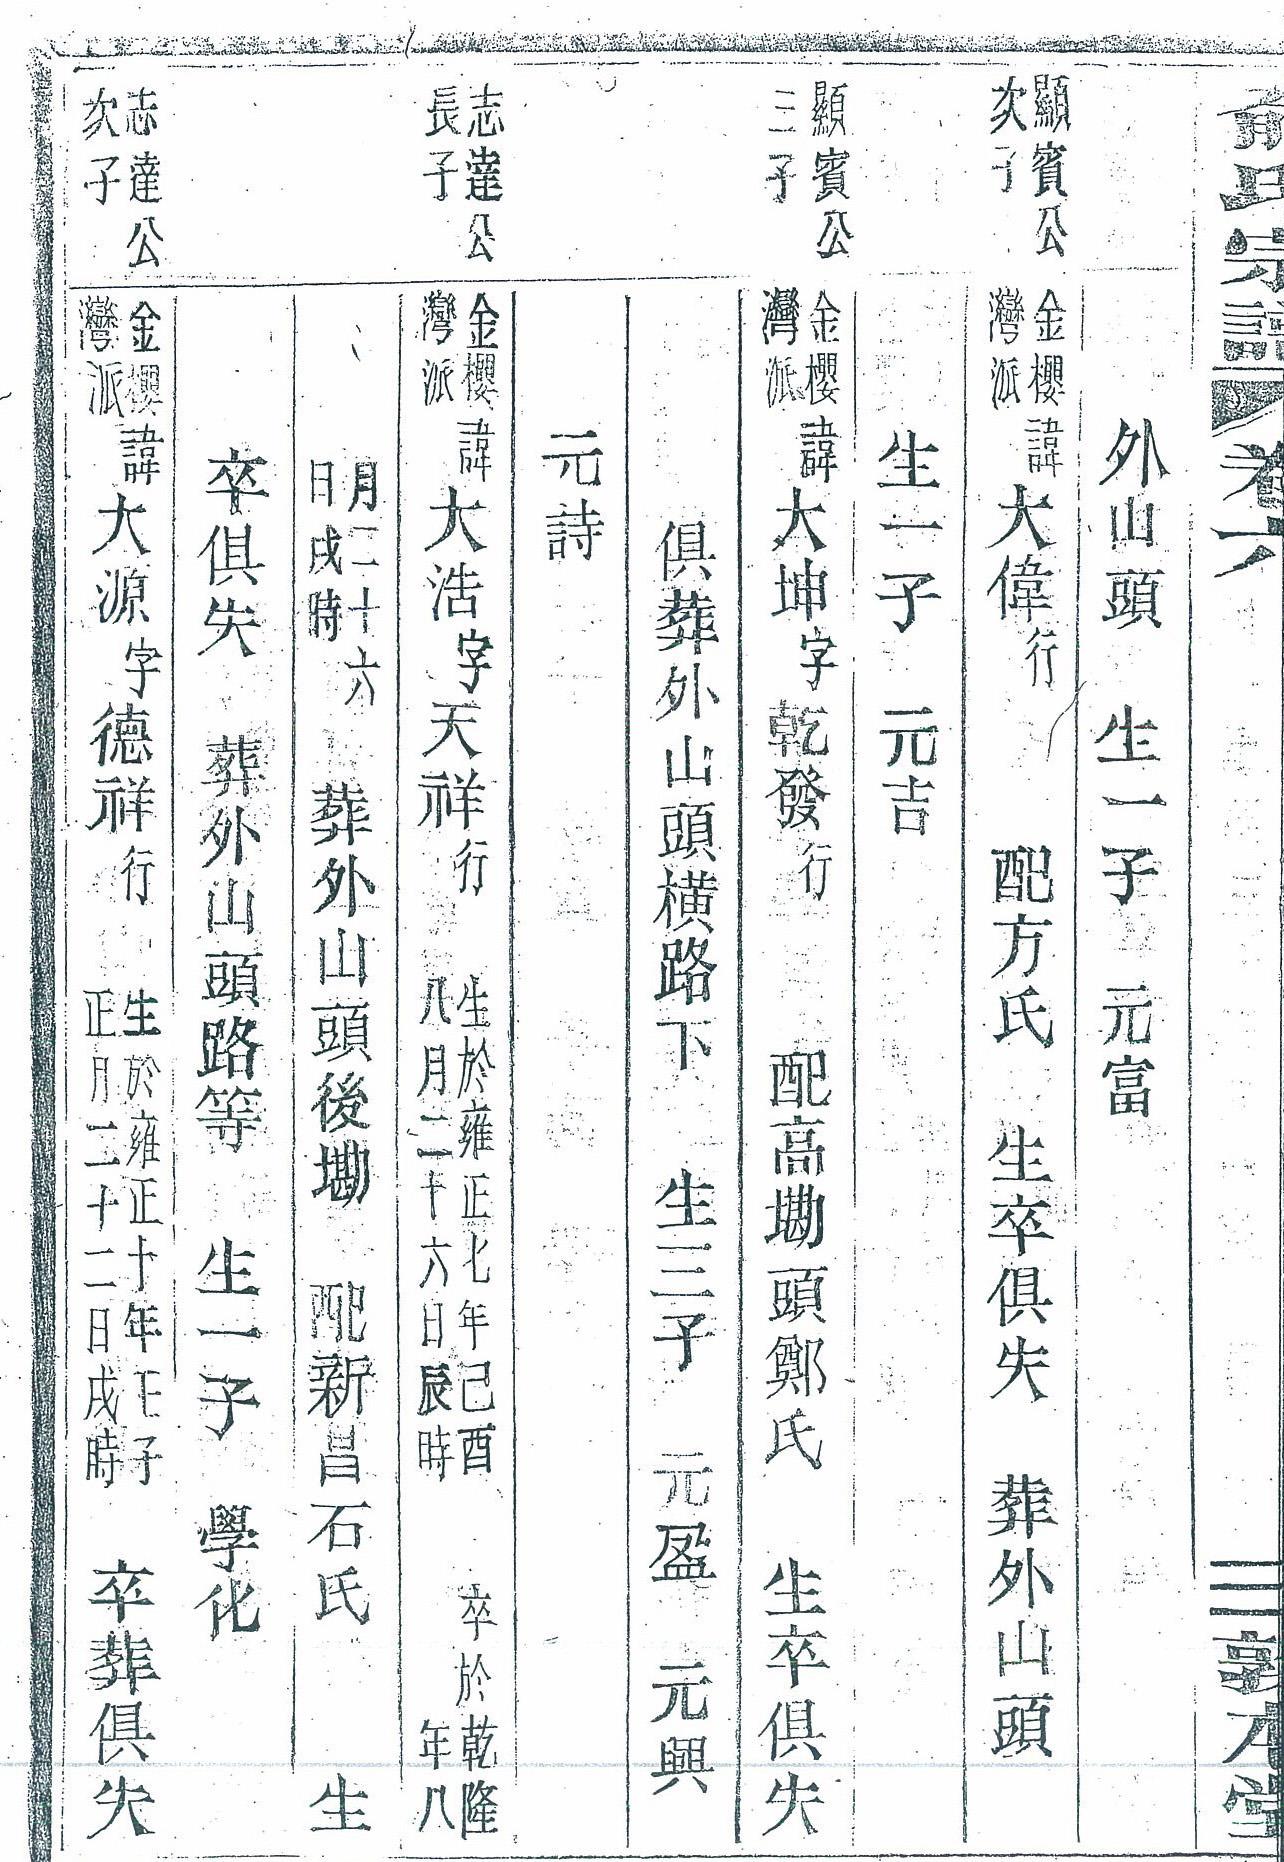 俞氏宗譜 卷六 三 敦本堂
外山頭 生一子 元富
顯賓公次子 金櫻灣派 諱大偉行 配方氏 生卒俱失 葬外山頭
生一子 元吉
顯賓公三子 金櫻灣派 諱大坤字乾發行 配高墈頭鄭氏 生卒俱失
俱葬外山頭橫路下 生三子 元盈 元興
元詩
志達公長子 金櫻灣派 諱大浩字天祥行 生於雍正七年己酉八月二十六日辰時 卒於乾隆年八
月二十六日戌時 葬外山頭後墈 配新昌石氏 生
卒俱失 葬外山頭路等 生一子 學化
志達公次子 金櫻灣派 諱大源字德祥行 生於雍正十年壬子正月二十二日戌時 卒葬俱失